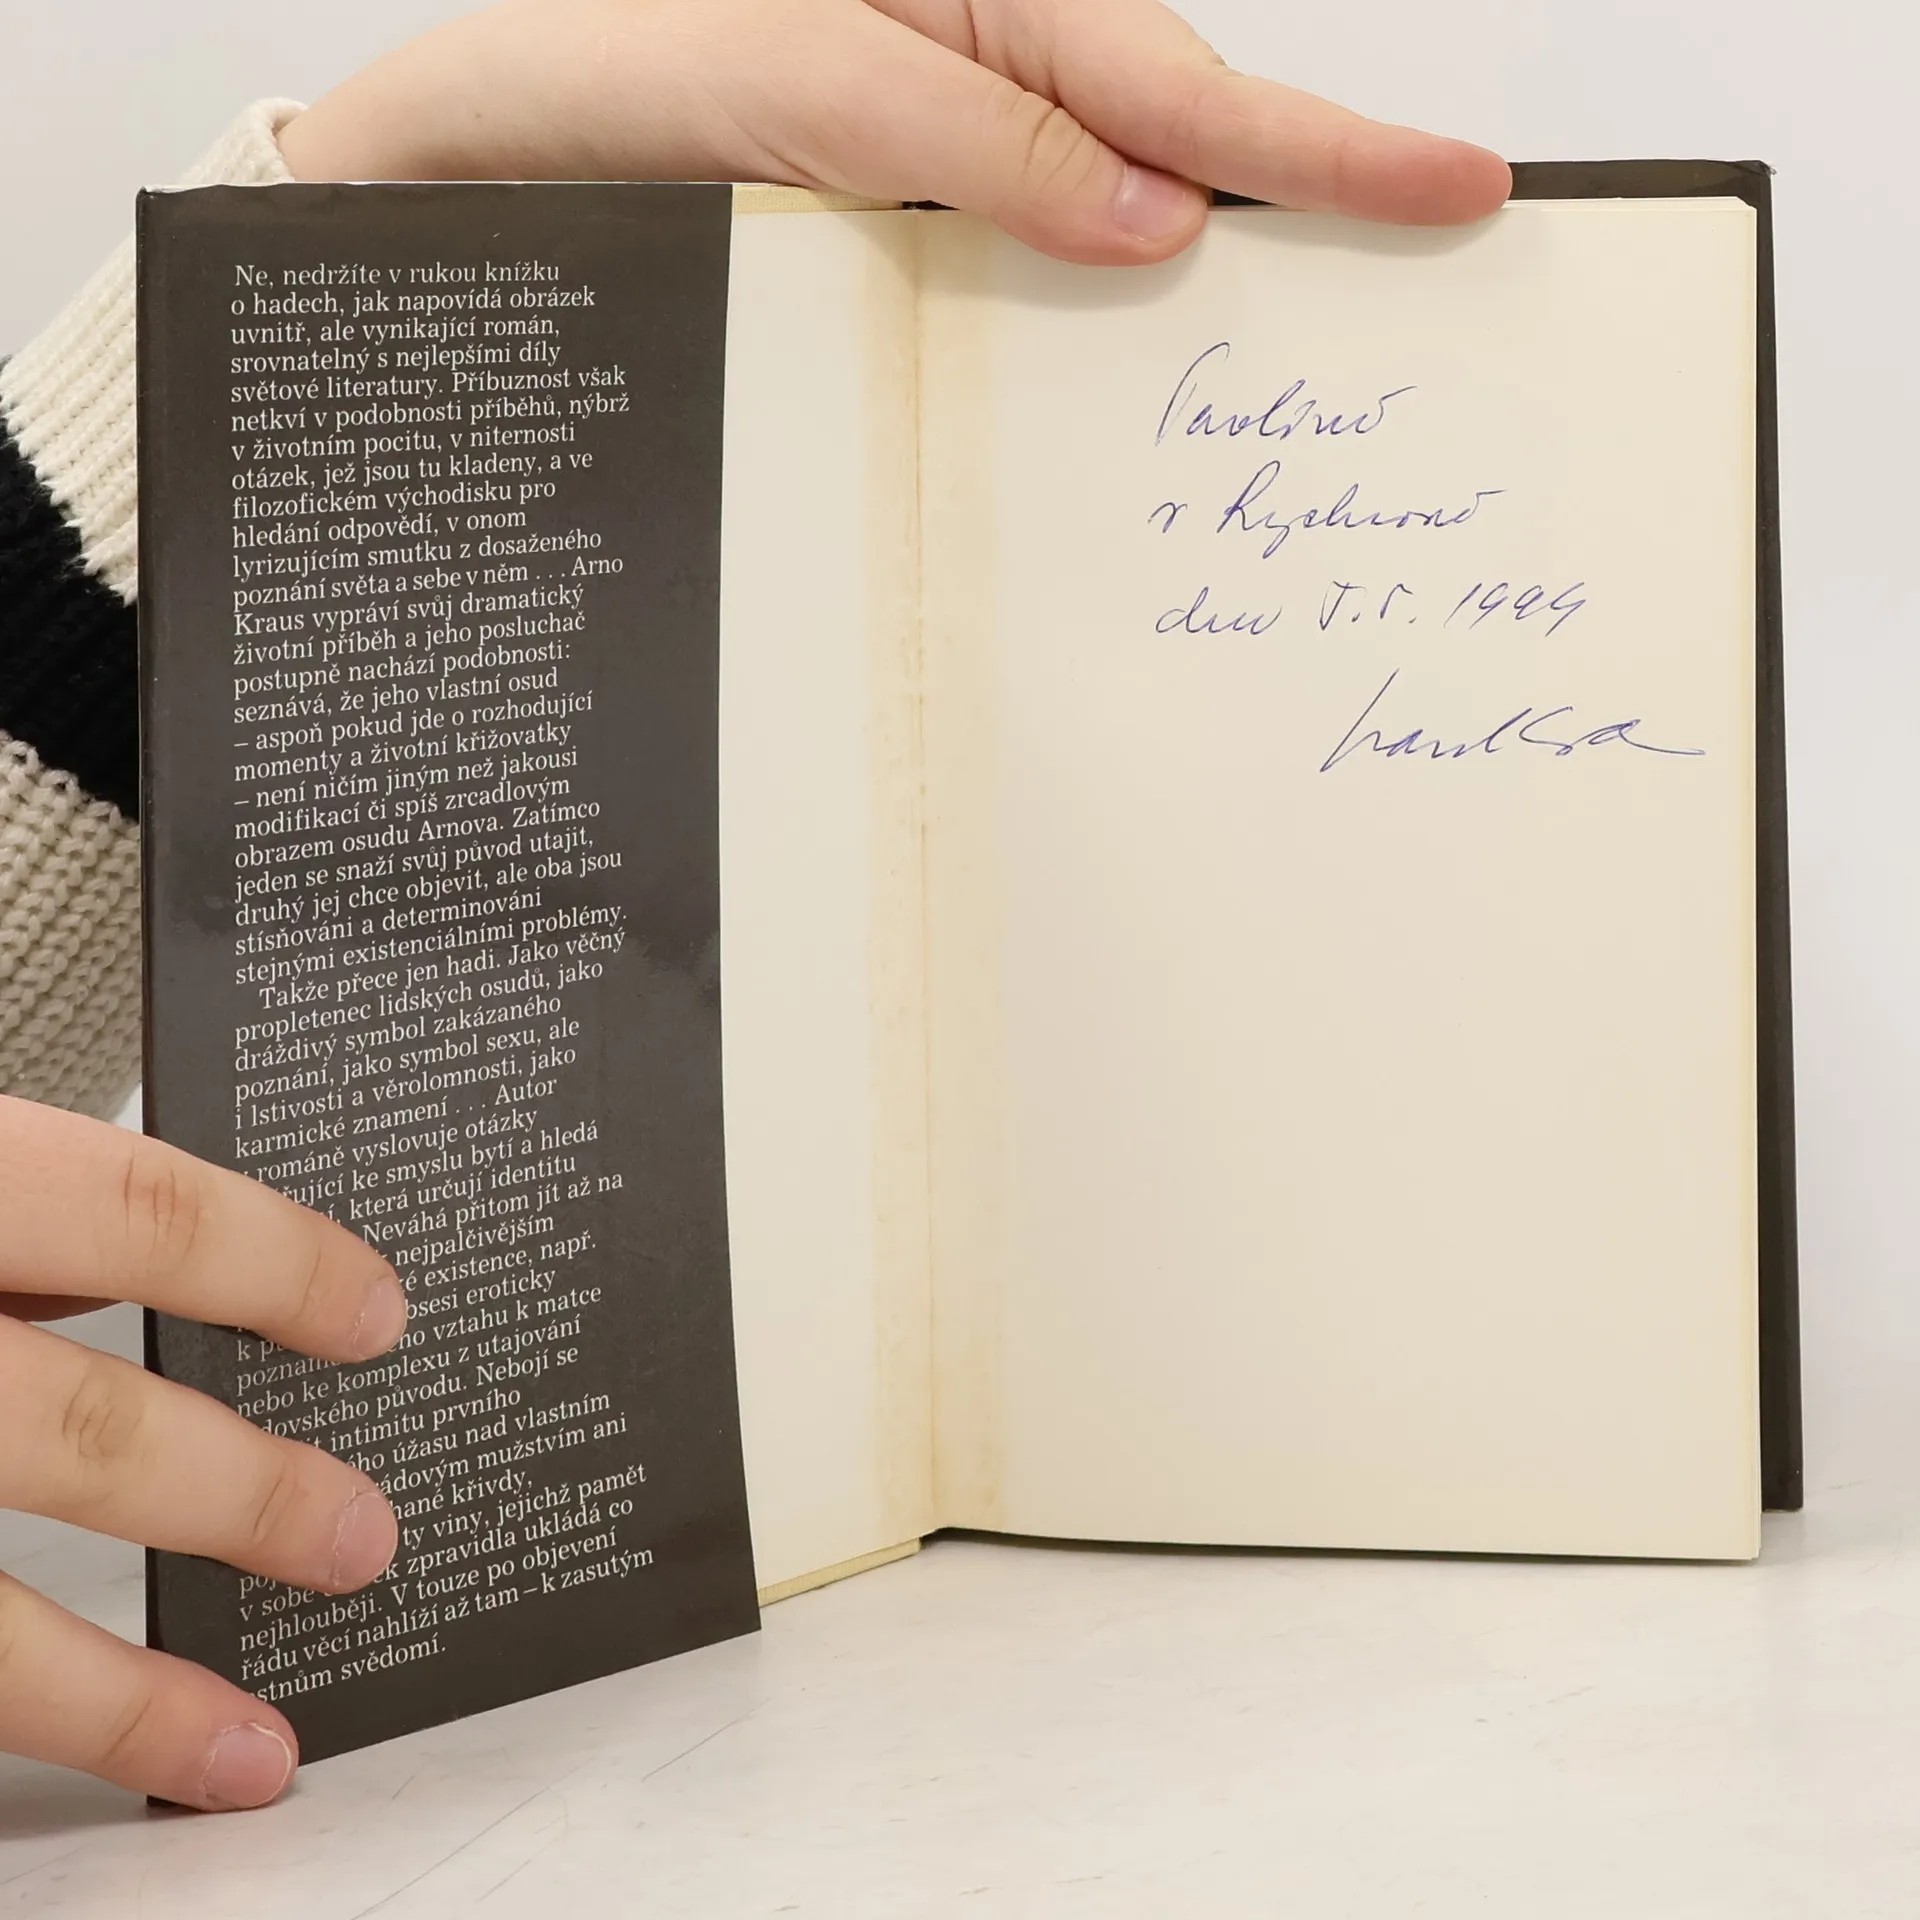 Ne, nedržíte v rukou knížku
o hadech, jak napovídá obrázek
uvnitř, ale vynikající román,
srovnatelný s nejlepšími díly
světové literatury. Příbuznost však
netkví v podobnosti příběhů, nýbrž
v životním pocitu, v niternosti
otázek, jež jsou tu kladeny, a ve
filozofickém východisku pro
hledání odpovědí, v onom
lyrizujícím smutku z dosaženého
poznání světa a sebe v něm . . . Arno
Kraus vypráví svůj dramatický
životní příběh a jeho posluchač
postupně nachází podobnosti:
seznává, že jeho vlastní osud
– aspoň pokud jde o rozhodující
momenty a životní křižovatky
– není ničím jiným než jakousi
modifikací či spíš zrcadlovým
obrazem osudu Arnova. Zatímco
jeden se snaží svůj původ utajit,
druhý jej chce objevit, ale oba jsou
stísňováni a determinováni
stejnými existenciálními problémy.
Takže přece jen hadi. Jako věčný
propletenec lidských osudů, jako
dráždivý symbol zakázaného
poznání, jako symbol sexu, ale
i lstivosti a věrolomnosti, jako
karmické znamení . . . Autor
románě vyslovuje otázky
ke smyslu bytí a hledá
která určují identitu
Neváhá přitom jít až na
nejpalčivějším
existence, např.
eroticky
k vztahu k matce
nebo ke komplexu z utajování
původu. Nebojí se
intimitu prvního
úžasu nad vlastním
mužstvím ani
křivdy,
ty viny, jejichž pamět
v sobě zpravidla ukládá co
nejhlouběji. V touze po objevení
řádu věcí nahlíží až tam – k zasutým
svědomí.
Pavlíně
v Rychnově
dne 5. 5. 1994